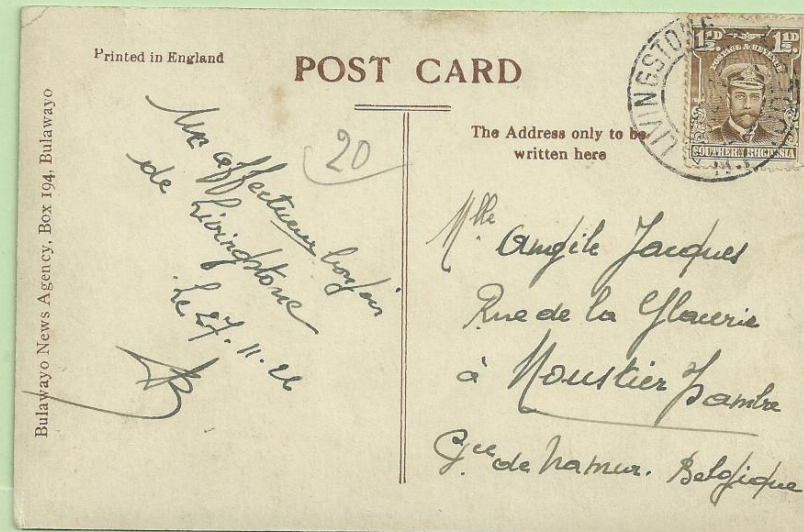 Printed in England
POST CARD
The Address only to be
written here
Bulawayo News Agency, Box 194, Bulawayo
20
Un affectueux bonjour
de Livingstone
Le 27.11.26
LIVINGSTONE
1½D 1½D
POSTAGE & REVENUE
SOUTHERN RHODESIA
Mlle Angèle Jacques
Rue de la Glacerie
à Moustier s/Sambre
Pce de Namur. Belgique